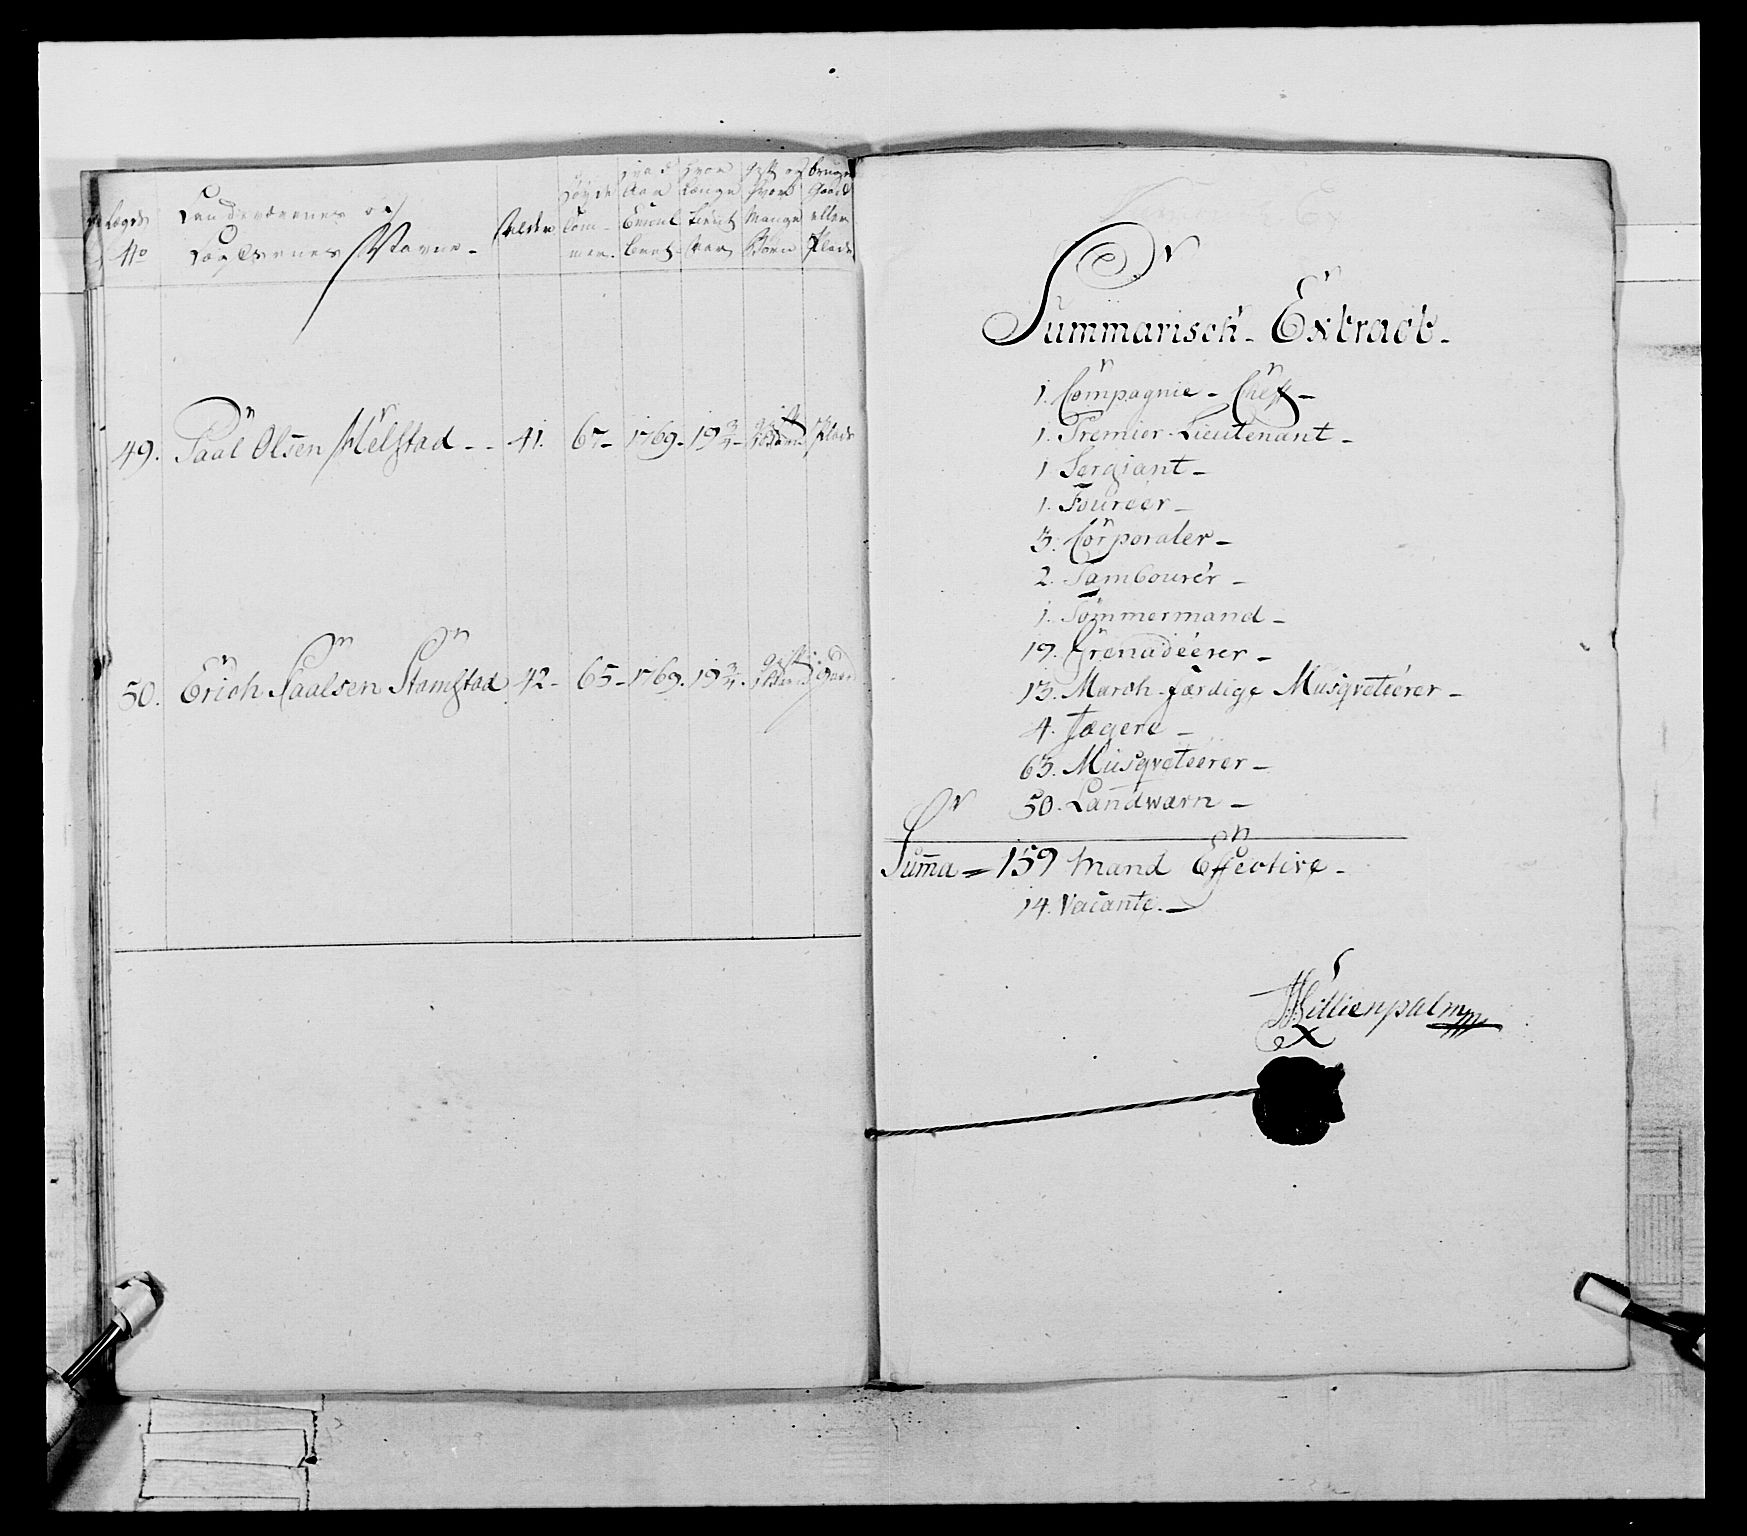 Lægds No
Landeværnes og Lægdernes Navne -
Alder
Høyde Tom-mer.
Hvad Aar Enroul-leret
Hvor Længe tient Aar
Gift og hvor Mange Børn
Bruger Gaard eller Plads
49. Paal Olsen Helstad - - 41. 67 - 1769 - 19 3/4 - gift Plads
50. Erich Paalsen Stamstad 42 - 65 - 1769. 19 3/4. gift Gaard
Summarisch - Extract -
1. Compagnie - Cheff -
1. Premier - Lieutenant -
1 Sergiant -
1. Foureer -
3. Corporaler -
2. Tambourer -
1. Tømmermand -
19. Grenadeerer -
13. March-færdige Musqveteerer -
4. Jægere -
63. Musqveteerer -
50. Landwærn -
Summa = 159 Mand Effective -
14. Vacante. -
Hillienpalm